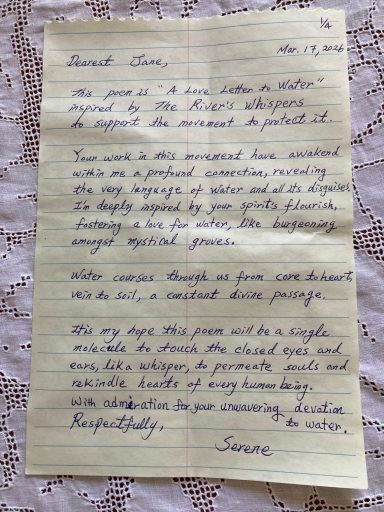 1/4
Mar. 17, 2026
Dearest Jane,
This poem is "A Love Letter to Water"
inspired by The River's Whispers
to support the movement to protect it.
Your work in this movement have awakend
within me a profound connection, revealing
the very language of water and all its disguises
I'm deeply inspired by your spirit's flourish,
fostering a love for water, like burgeoning
amongst mystical groves.
Water courses through us from core to heart,
vein to soil, a constant divine passage.
It is my hope this poem will be a single
molecule to touch the closed eyes and
ears, lika whisper, to permeate souls and
rekindle hearts of every human being.
With admiration for your unwavering devotion
to water.
Respectfully,
Serene